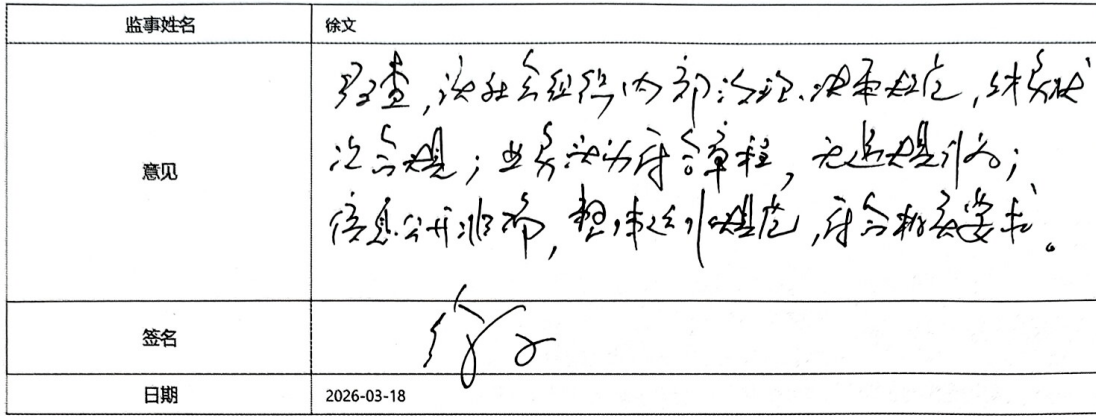 监事姓名 徐文
意见
经查,该社会组织内部治理、决策规范,财务状
况合规;业务活动符合章程,无违规行为;
信息公开准确,整体运行规范,符合相关要求。
签名 徐文
日期 2026-03-18